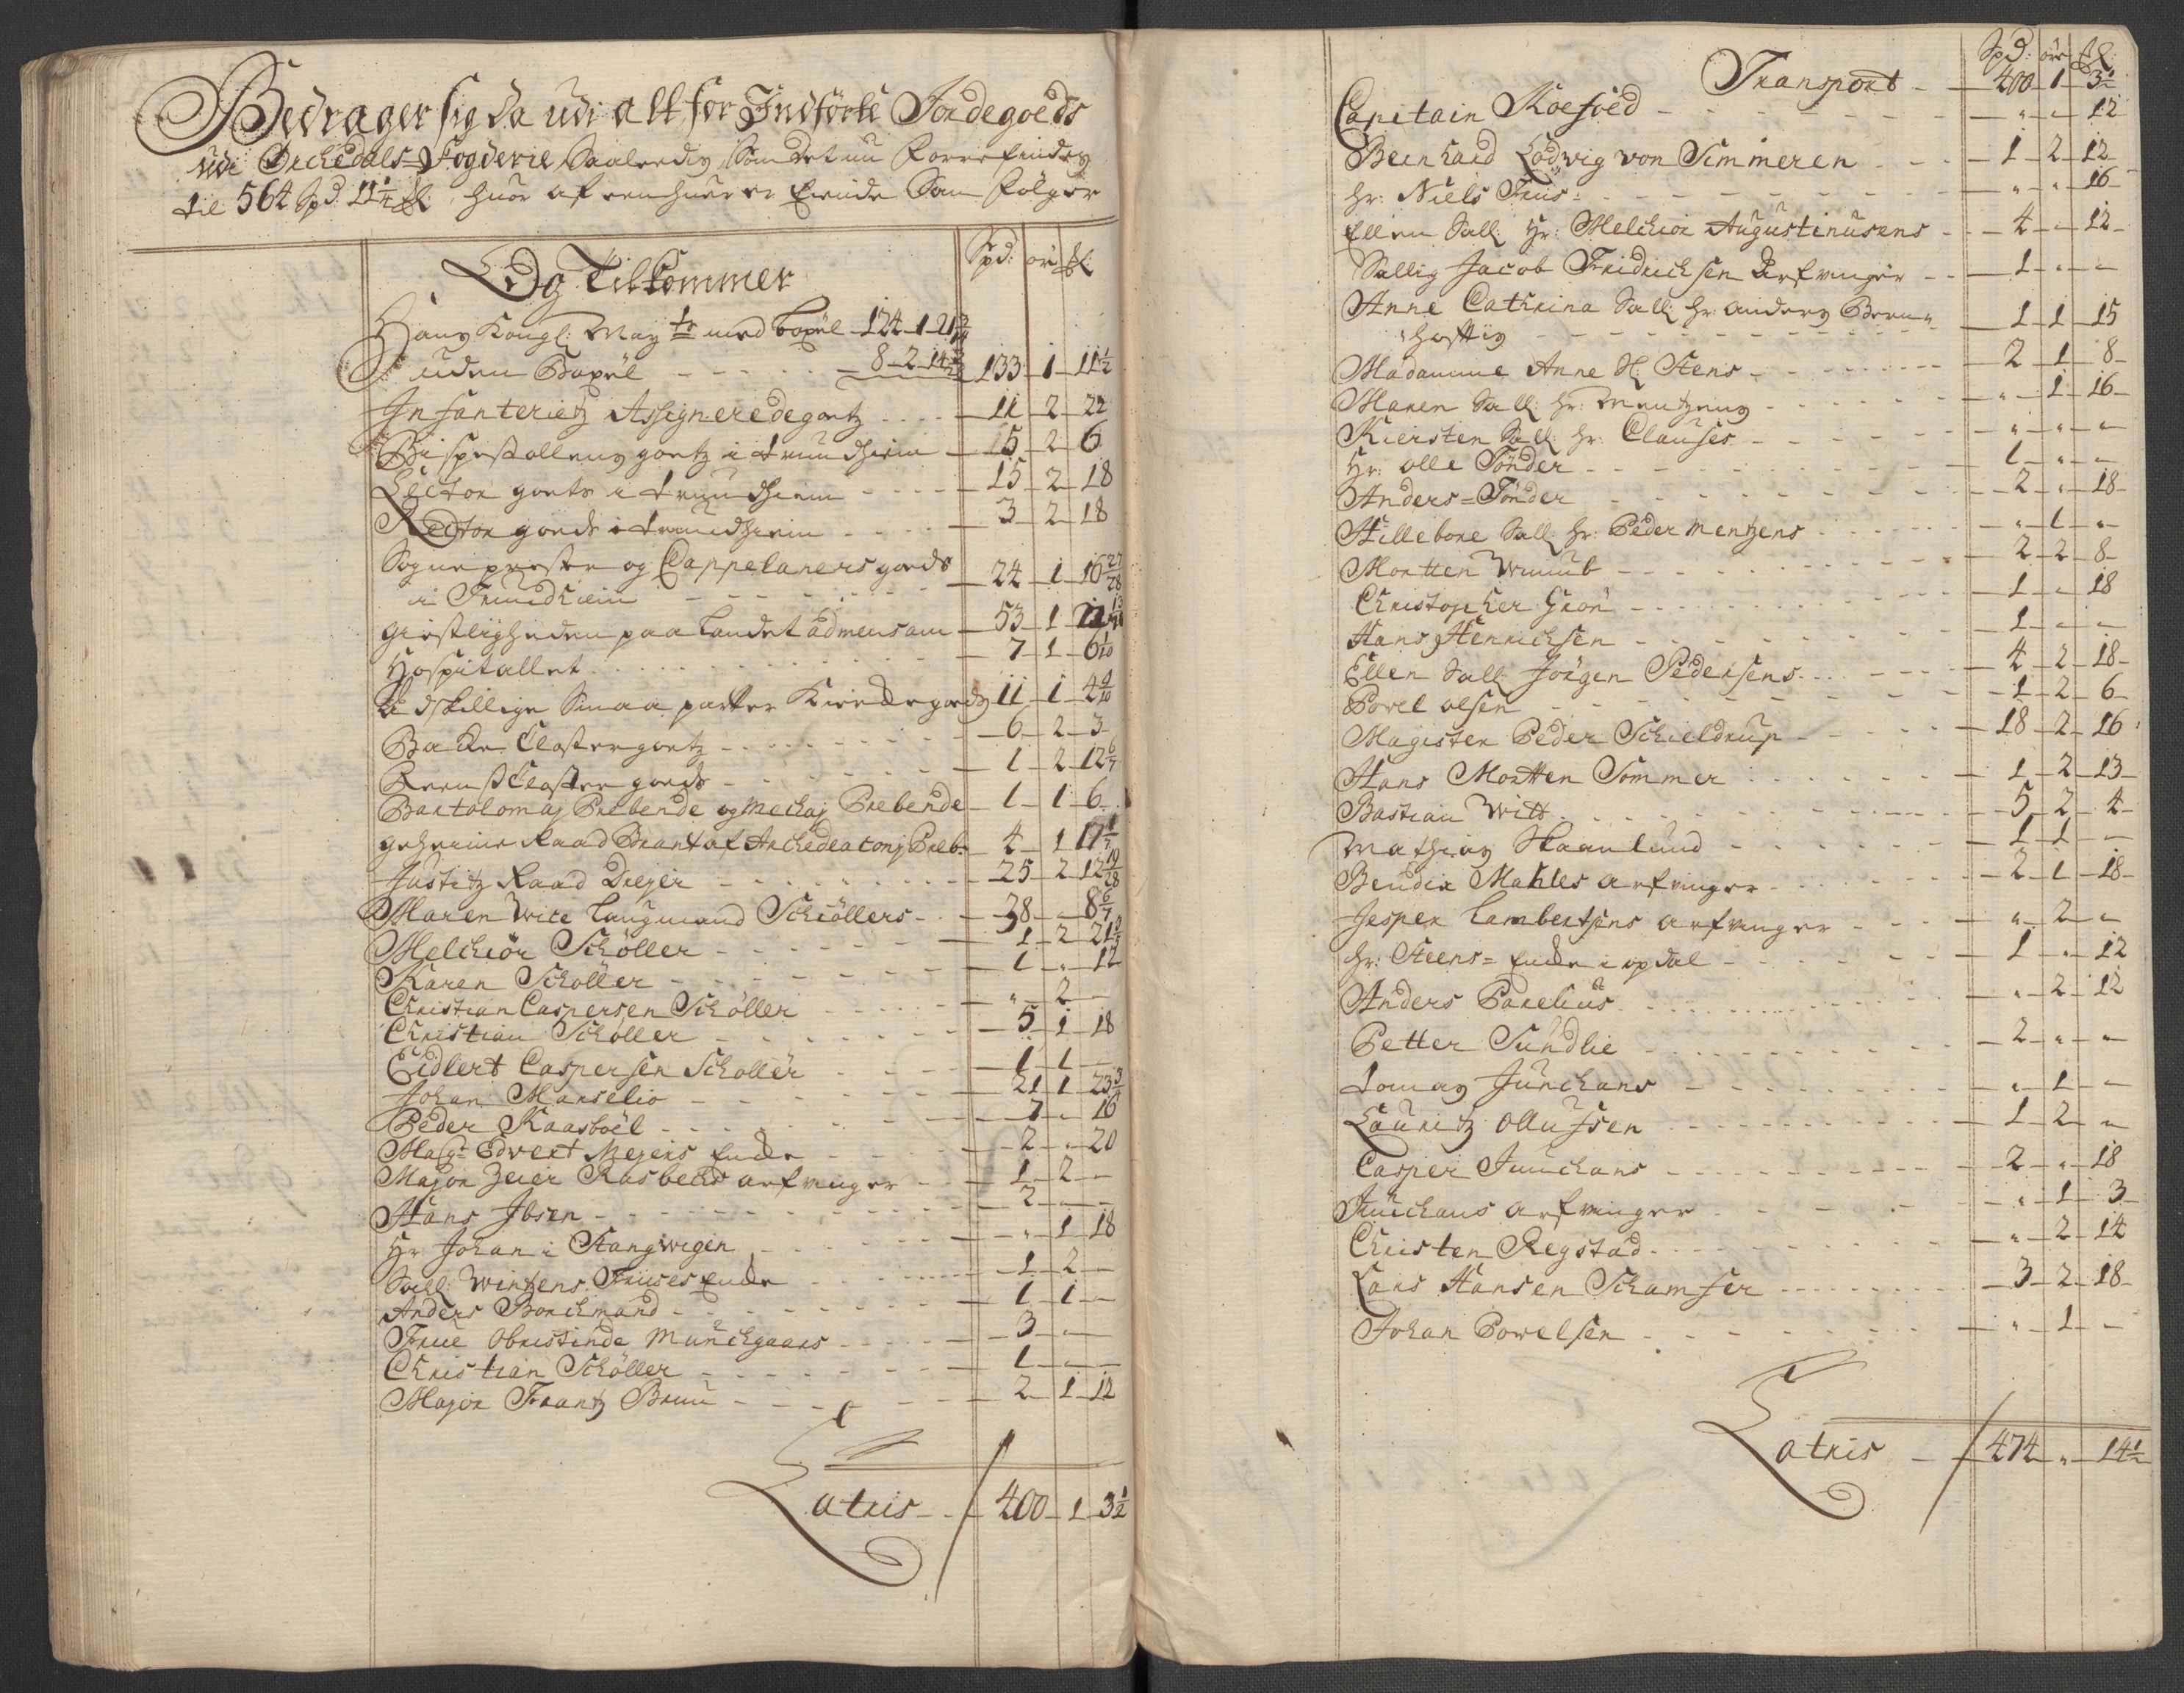 Bedrager sig da udi alt for Indförte Jordegoeds
udi Orchedals Fogderie Saaledis Som det nu Forrefindes
til 564 Spd: 11¼ ₰: huor af een huer er Eiende Som Fölger
Spd: ör ₰:
Og Tilkommer
Hans Kongl: May:tz med Bøxel 124 1 21
uden Bøxel 8 2 14 133 1 11½
Infanteriets Assigneredegoetz 11 2 22
Bispestollens goetz i Trundhiem 15 2 6
Lector goets i Trundhiem 15 2 18
Rector goeds i Trundhiem 3 2 18
Sogneprester og Cappelaners goeds
i Trundhiem 24 1 16 27/28
Giestligheden paa Landet ad mensam 53 1
Hospitallet 7 1 6 1/10
Adskillige Smaa parter Kirckegoeds 11 1 4 9/10
Backe Clostergoetz 6 2 3
Reens Closter goeds 1 2 12 6/7
Bartolomaj Prebende og Mechaj Prebende 1 1 6
Geheime Raad Brant af Archedeaconj Preb: 4 1 17 1/7
Justitz Raad Dreyer 25 2 12 19/28
Maren Vice Laugmand Schöllers 38 - 8 6/7
Melchior Schöller 1 2 21
Karen Schöller 1 " 12
Christian Caspersen Schöller " 2 -
Christian Schöller 5 1 18
Eidlert Caspersen Schöller 1 1 -
Johan Marselio 21 1 23
Peder Kaasböel 7 - 16
Mag:r Edvert Meyers Encke 2 " 20
Major Zeier Rasbechs arfvinger 1 2 -
Hans Ibsen 2 - -
Hr: Johan i Stangvigen " 1 18
Sall: Wintzens Friises Encke 1 2 -
Anders Borchmand 1 1 -
Frue Obristinde Munchgaars 3 - -
Christian Schöller 1 - -
Major Frantz Bruu 2 1 12
Latris 400 1 3½
Spd: ör ₰:
Transport 400 1 3½
Capitain Koefoed " - 12
Bernhard Lodvig von Simmeren 1 2 12
Hr: Niels Friis: " " 16
Ellen Sall: Hr: Melchior Augustinusens 4 - 12
Sallig Jacob Fridrichsen Arfvinger 1 " -
Anne Cathrina Sall: Hr: Anders Bern-
hoftig 1 1 15
Madamme Anne H: Stens 2 1 8
Maren Sall: Hr: Mentzens " 1 16
Kiersten Sall: Hr: Clauses " " "
Hr: Olle Tönder 1 " "
Anders Tönder 2 " 18
Hilleborre Sall: Hr: Peder Mentzens " 1 "
Mortten 2 2 8
Christopher Grön 1 - 18
Hans Henrichsen 1 - -
Ellen Sall: Jörgen Pedersens 4 2 18
Povel Olsen 1 2 6
Magister Peder Schieldrup 18 2 16
Hans Mortten Sommer 1 2 13
Bastian Witt 5 2 4
Mathias Skaanlund 1 1 -
Bendix Mahles arfvinger 2 1 18
Jesper Lambertsens arfvinger " 2 -
Hr: Steens Encke i Opdal 1 " 12
Anders Parelius " 2 12
Petter Sundlie 2 " "
Tomas Junchans " 1 -
Lauritz Ollufsen 1 2 "
Casper Junchans 2 " 18
Junchans arfvinger " 1 3
Christen Regstad " 2 14
Lars Hansen Schamfer 3 2 18
Johan Povelsen " 1 -
Latris 474 " 14½